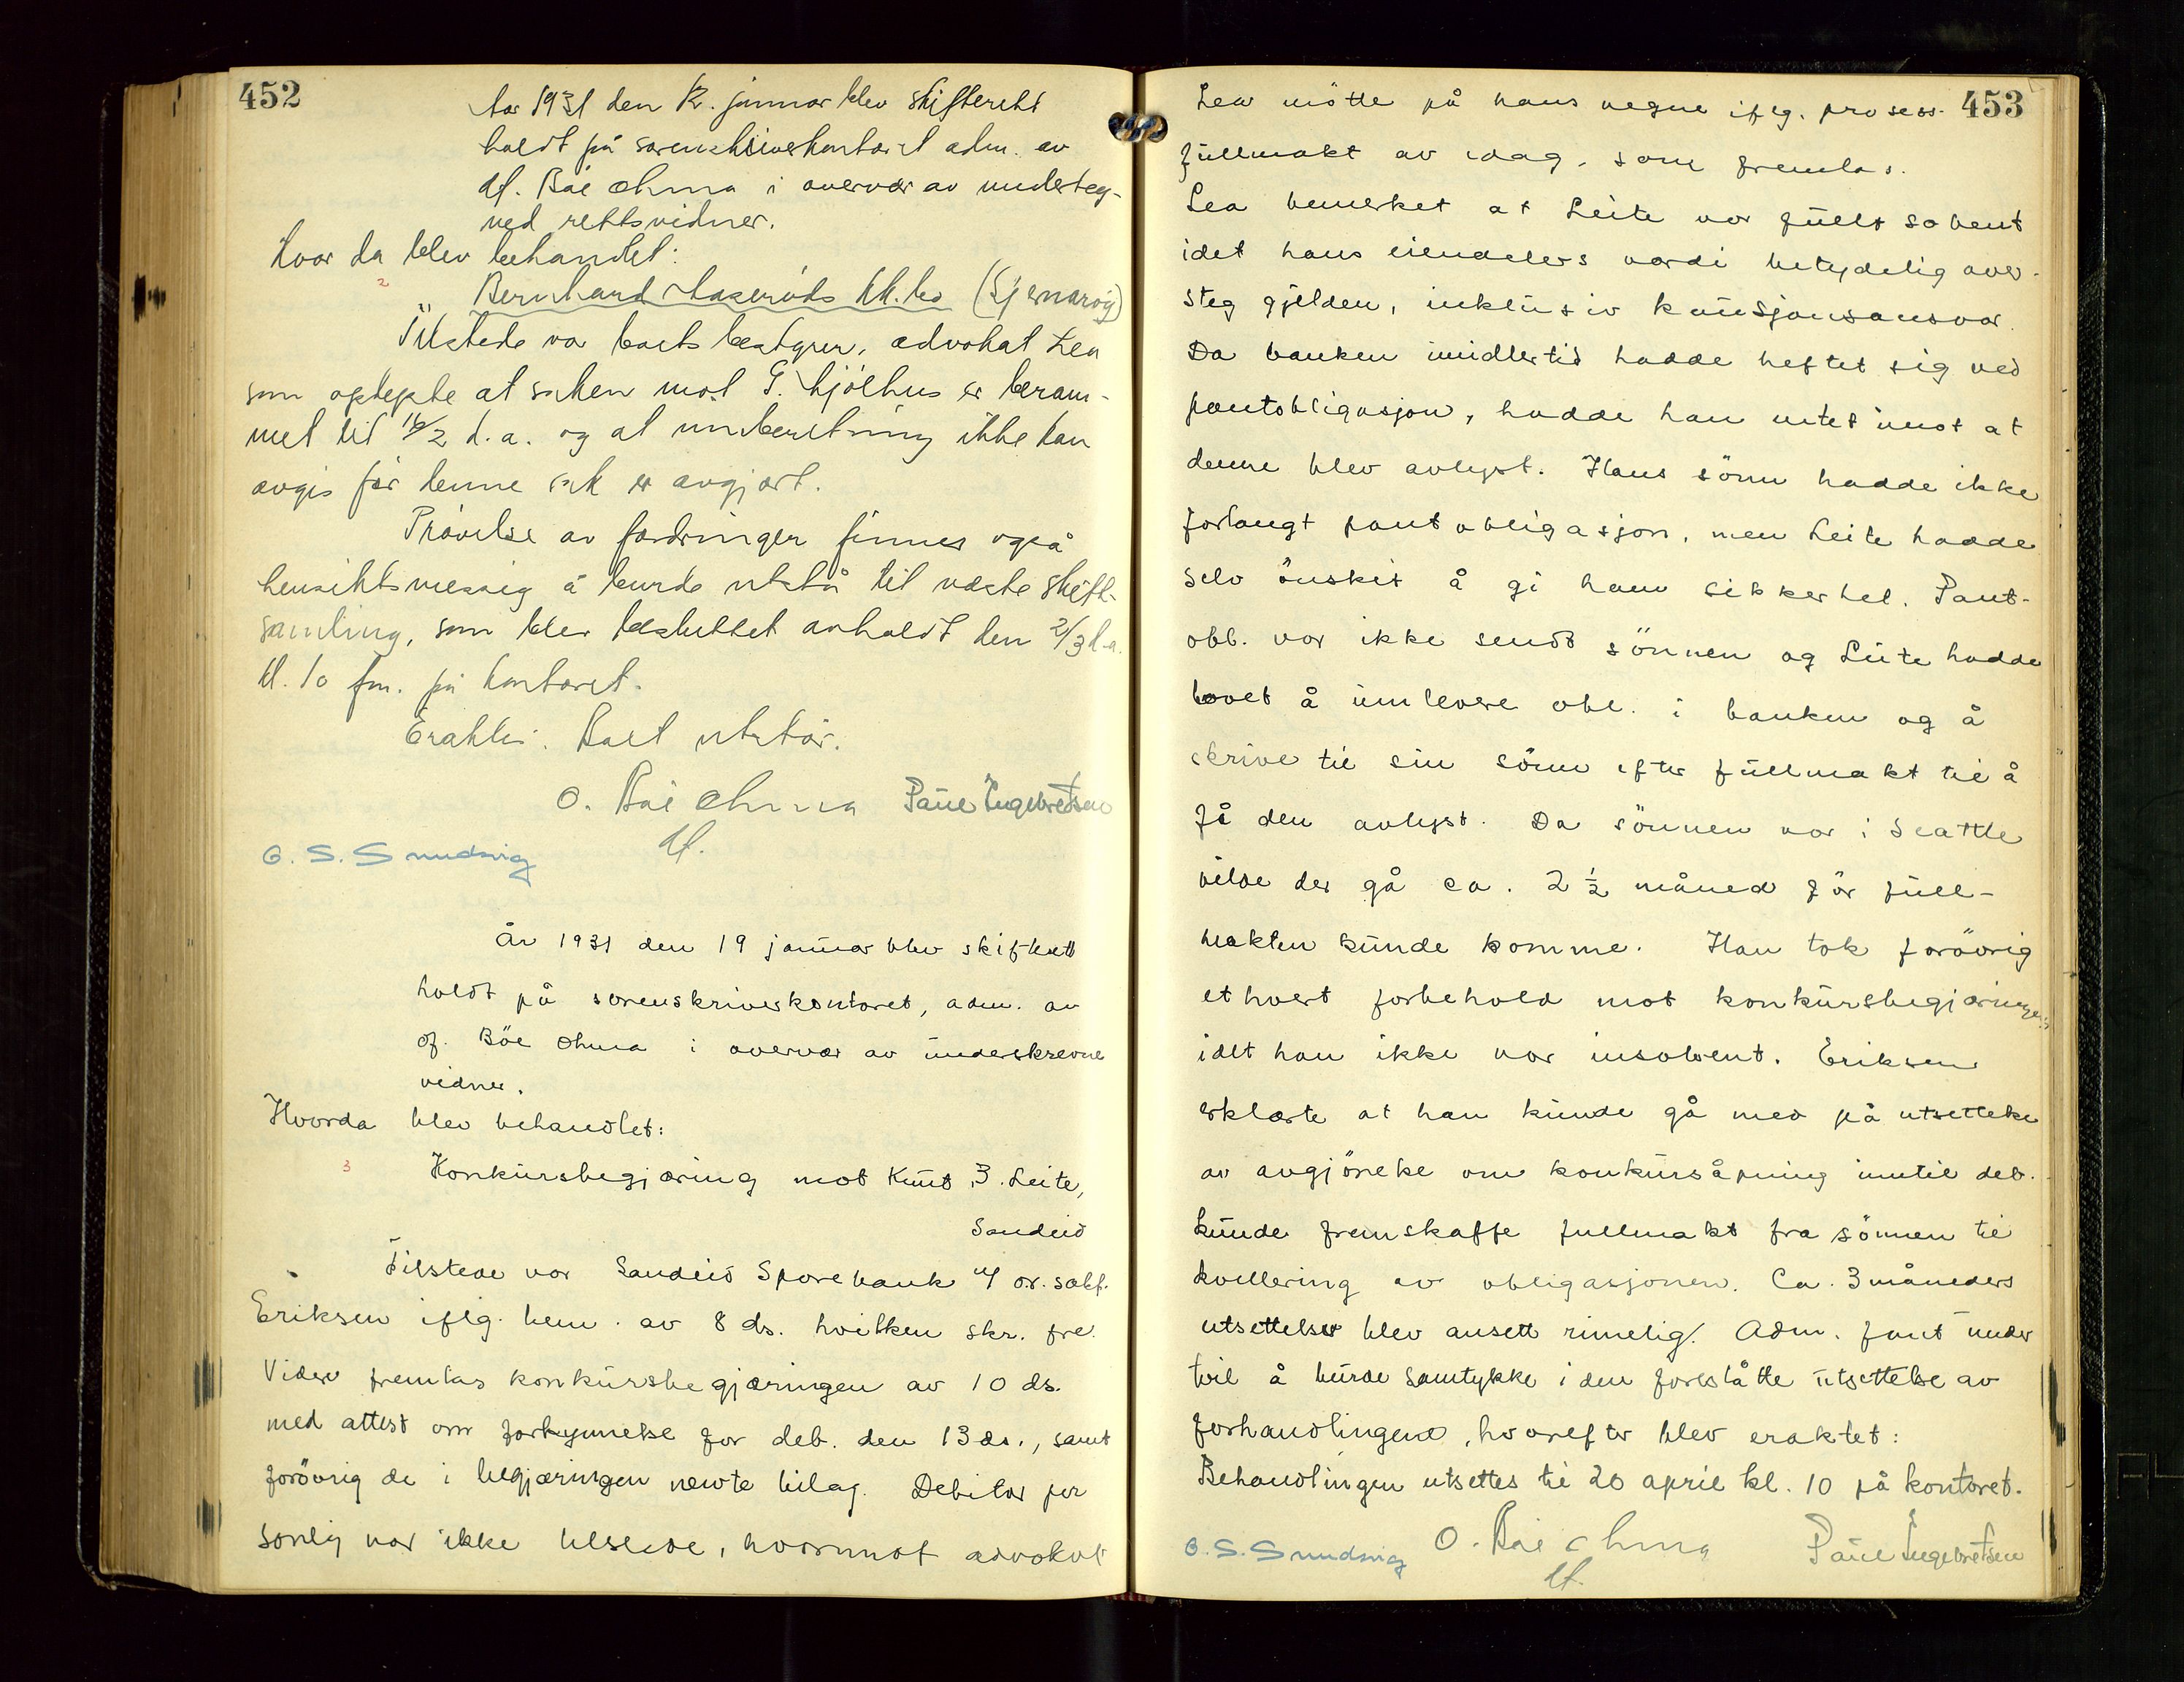 452
Aar 1931 den 12. januar blev skifterett
holdt på sorenskriverkontoret adm. av
ff. Bøe Ohma i overvær av underteg-
ned rettsvidner.
Hvor da blev behandlet:
2 Bernhard kk.bo (Sjernarøy)
Tilstede var boets bestyrer, advokat Lea
som oplyste at saken mot G. Hjólhus er beram-
met til 16/2 d.a. og at innberetning ikke kan
avgis før denne sak er avgjort.
Prövelse av fordringer finnes også
hensiktsmessig å burde utstå til næste skifte-
samling, som blev besluttet avholdt den 2/3 d.a.
kl. 10 fm. på kontoret.
Eraktes: Boet utstår.
O. Bøe Ohma Paul Ingebretsen
ff.
G. S. Sundvig
År 1931 den 19 januar blev skifterett
holdt på sorenskriverkontoret, adm. av
ff. Böe Ohma i overvær av underskrevne
vidner.
Hvorda blev behandlet:
3 Konkursbegjæring mot Knut 3. Leite,
Sandeid
Tilstede var Sandeid Sparebank v/ o.r. sakf.
Eriksen iflg. bem. av 8 ds. hvilken skr. fre.
Videre fremlas konkursbegjæringen av 10 ds.
med attest om forkynnelse for deb. den 13 ds., samt
forövrig de i begjæringen nevnte bilag. Debitor per
sonlig var ikke tilstede, hvorimot advokat
453
Lea mötte på hans vegne iflg. prosess-
fullmakt av idag, som fremlas.
Lea bemerket at Leite var fullt solvent
idet hans eiendelers verdi betydelig over-
steg gjelden, inklusiv kausjonsansvar.
Da banken imidlertid hadde heftet sig ved
pantobligasjon, hadde han intet imot at
denne blev avlyst. Hans sönn hadde ikke
forlangt pantobligasjon, men Leite hadde
selv önsket å gi ham sikkerhet. Pant-
obl. var ikke sendt sönnen og Leite hadde
lovet å innlevere obl. i banken og å
skrive til sin sönn efter fullmakt til å
få den avlyst. Da sönnen var i Seattle
vilde der gå ca. 2 1/2 måned för full-
makten kunde komme. Han tok forövrig
ethvert forbehold mot konkursbegjæringen,
idet han ikke var insolvent. Eriksen
erklærte at han kunde gå med på utsettelse
av avgjörelse om konkursåpning inntil deb.
kunde fremskaffe fullmakt fra sönnen til
kvittering av obligasjonen. Ca. 3 måneders
utsettelse blev ansett rimelig. Adm. fant under
tvil å burde samtykke i den foreslåtte utsettelse av
forhandlingene, hvorefter blev eraktet:
Behandlingen utsettes til 20 april kl. 10 på kontoret.
G. S. Sundvig O. Bøe Ohma Paul Ingebretsen
ff.